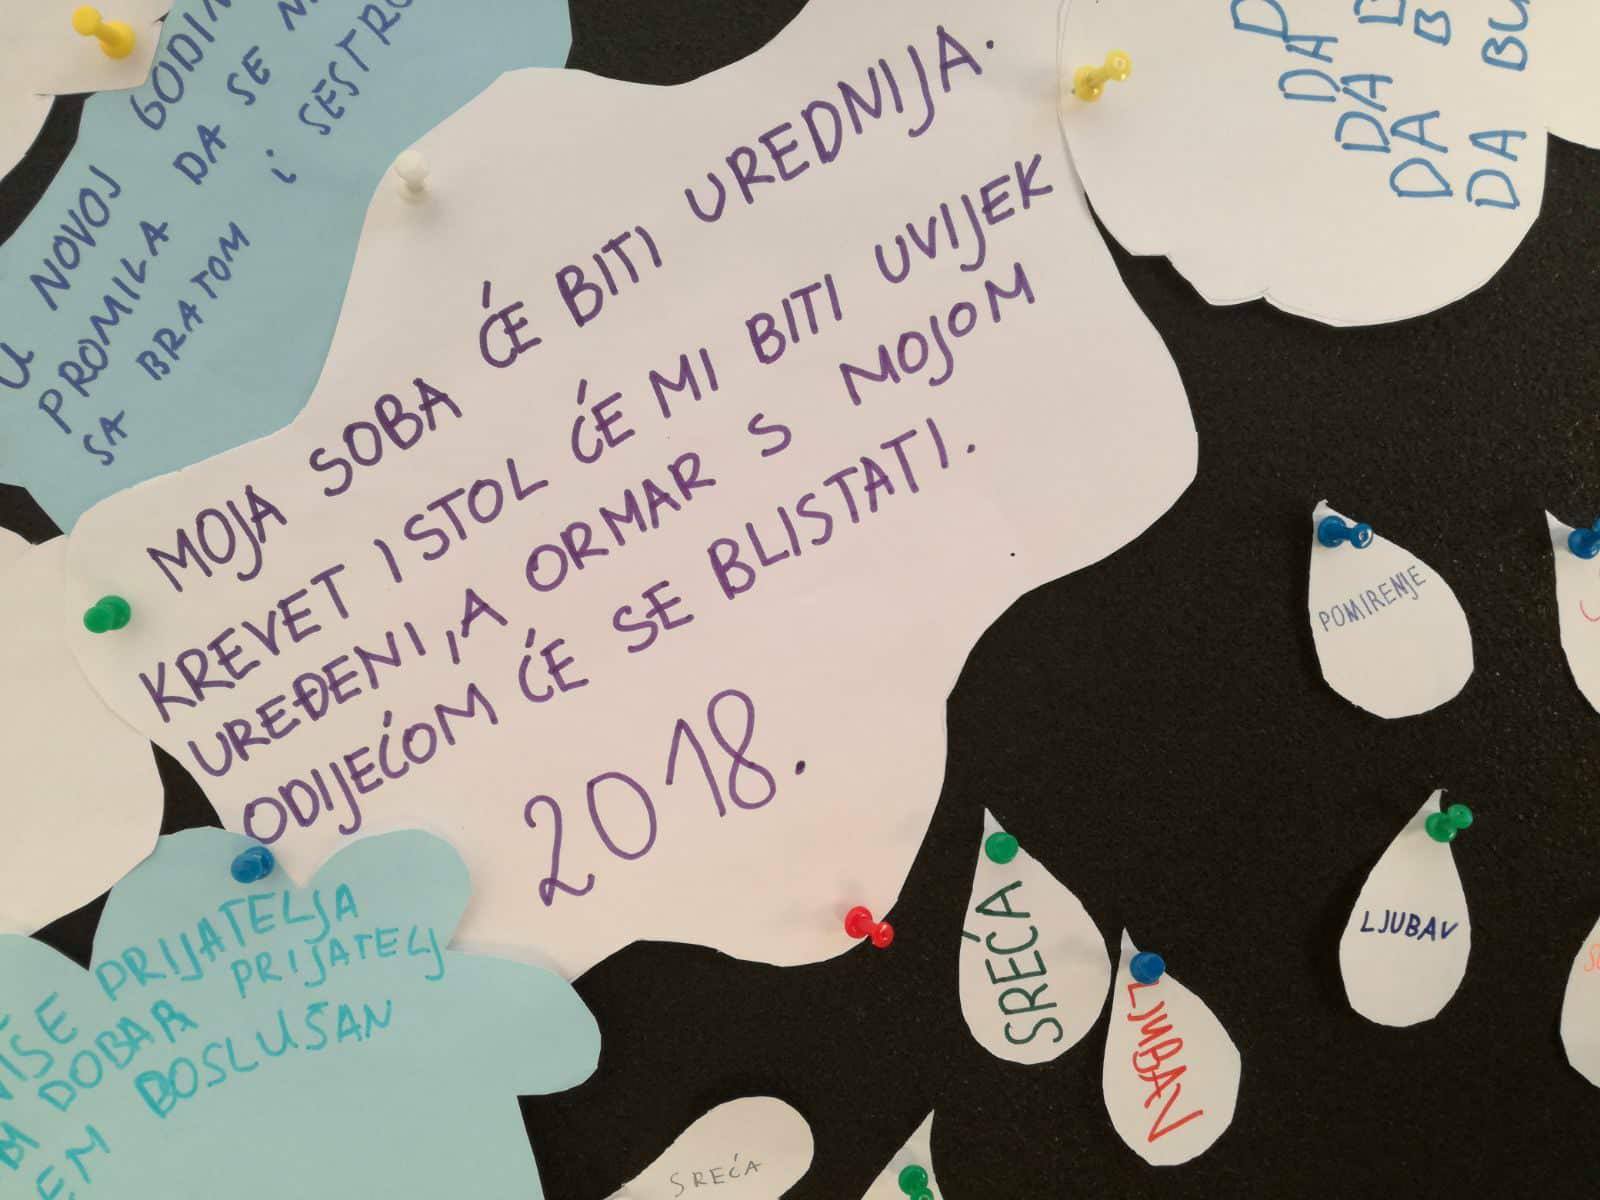 U NOVOJ
PROMILA DA SE
SA BRATOM i
MOJA SOBA ĆE BITI UREDNIJA.
KREVET I STOL ĆE MI BITI UVIJEK
UREĐENI, A ORMAR S MOJOM
ODIJEĆOM ĆE SE BLISTATI.
2018.
DA
DA
DA
DA
PRIJATELJA
DOBAR PRIJATELJ
BOSLUŠAN
POMIRENJE
LJUBAV
SREĆA
LJUBAV
SREĆA